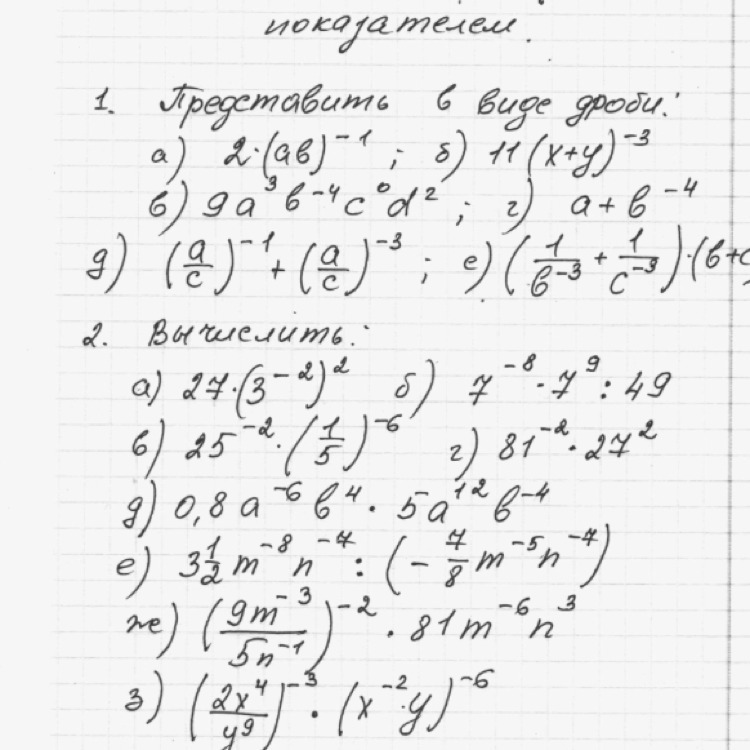 показателем.
1. Представить в виде дроби:
а) 2·(ab)⁻¹; б) 11(x+y)⁻³
в) 9a³b⁻⁴c⁰d²; г) a+b⁻⁴
д) (a/c)⁻¹+(a/c)⁻³; е) (1/b⁻³+1/c⁻³)·(b+c
2. Вычислить:
а) 27·(3⁻²)² б) 7⁻⁸·7⁹:49
в) 25⁻²·(1/5)⁻⁶ г) 81⁻²·27²
д) 0,8a⁻⁶b⁴·5a¹²b⁻⁴
е) 3 1/2 m⁻⁸n⁻⁷:(-7/8 m⁻⁵n⁻⁷)
ж) (9m⁻³/5n⁻¹)⁻²·81m⁻⁶n³
з) (2x⁴/y⁹)⁻³·(x⁻²·y)⁻⁶